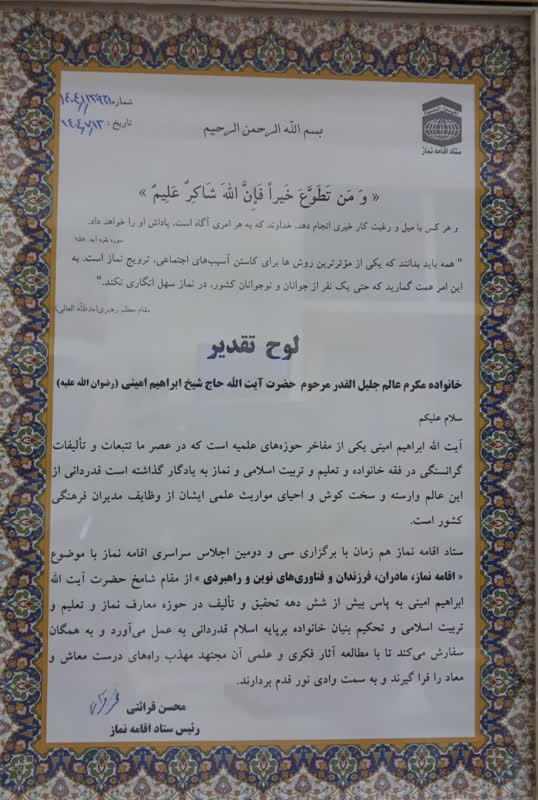 شماره:
تاریخ: ۱۴۰۴/۷/۱۳
ستاد اقامه نماز
بسم الله الرحمن الرحیم
« وَ مَن تَطَوَّعَ خَیراً فَإِنَّ اللهَ شَاکِرٌ عَلِیمٌ »
و هر کس با میل و رغبت کار خیری انجام دهد، خداوند که به هر امری آگاه است، پاداش او را خواهد داد.
سوره بقره آیه ۱۵۸
" همه باید بدانند که یکی از مؤثرترین روش ها برای کاستن آسیب‌های اجتماعی، ترویج نماز است. به
این امر همت گمارید که حتی یک نفر از جوانان و نوجوانان کشور، در نماز سهل انگاری نکند."
مقام معظم رهبری(مدظله العالی)
لوح تقدیر
خانواده مکرم عالم جلیل القدر مرحوم حضرت آیت الله حاج شیخ ابراهیم امینی (رضوان الله علیه)
سلام علیکم
آیت الله ابراهیم امینی یکی از مفاخر حوزه‌های علمیه است که در عصر ما تتبعات و تألیفات
گرانسنگی در فقه خانواده و تعلیم و تربیت اسلامی و نماز به یادگار گذاشته است قدردانی از
این عالم وارسته و سخت کوش و احیای مواریث علمی ایشان از وظایف مدیران فرهنگی
کشور است.
ستاد اقامه نماز هم زمان با برگزاری سی و دومین اجلاس سراسری اقامه نماز با موضوع
« اقامه نماز، مادران، فرزندان و فناوری‌های نوین و راهبردی » از مقام شامخ حضرت آیت الله
ابراهیم امینی به پاس بیش از شش دهه تحقیق و تألیف در حوزه معارف نماز و تعلیم و
تربیت اسلامی و تحکیم بنیان خانواده برپایه اسلام قدردانی به عمل می‌آورد و به همگان
سفارش می‌کند تا با مطالعه آثار فکری و علمی آن مجتهد مهذب راه‌های درست معاش و
معاد را فرا گیرند و به سمت وادی نور قدم بردارند.
محسن قرائتی
رئیس ستاد اقامه نماز